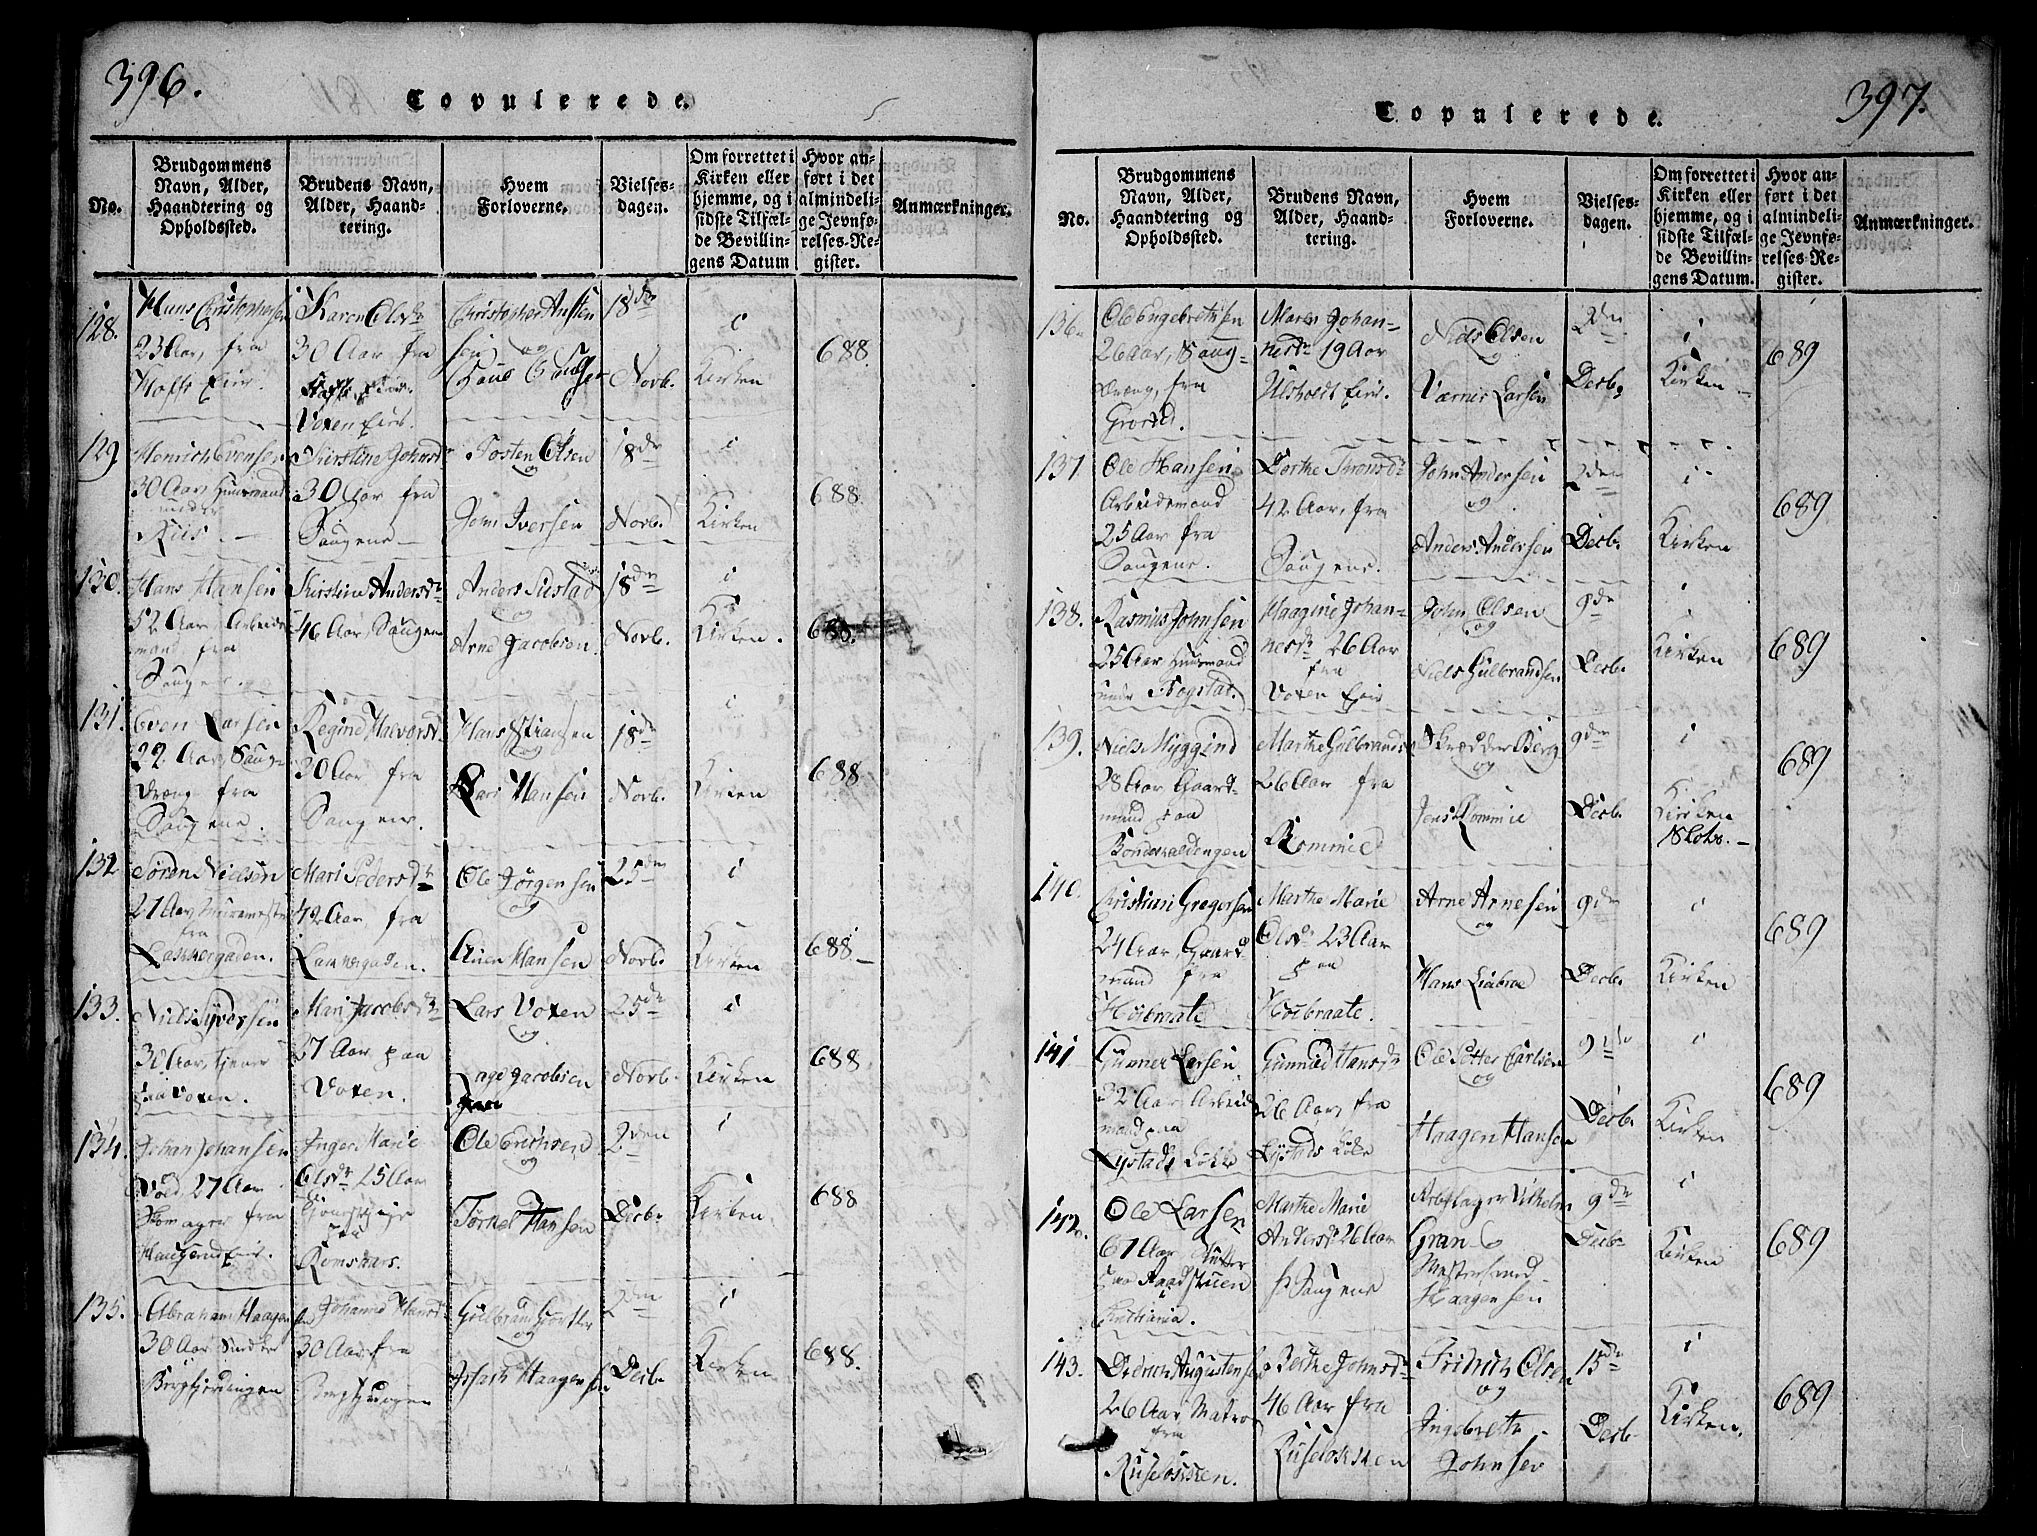 396.
Copulerede.
No.
Brudgommens Navn, Alder, Haandtering og Opholdssted.
Brudens Navn, Alder, Haandtering.
Hvem Forloverne.
Vielsesdagen.
Om forrettet i Kirken eller hjemme, og i sidste Tilfælde Bevillingens Datum
Hvor anført i det almindelige Jevnførelses-Register.
Anmærkninger.
128.
Hans Christophersen
23 Aar, fra
Karen Olsdr
30 Aar fra
Voxen Eier.
Christopher
og
18de
Novb.
i
Kirken
688
129.
Henrich Evensen
30 Aar, Huusmand
under
Riis.
Kirstine Johnsdr
30 Aar fra
Saugene
Tosten Olsen
og
John Iversen
18de
Novb.
i
Kirken
688.
130.
Hans Hansen
52 Aar Arbeidsmand fra
Saugene.
Kirstine Andersdr
46 Aar, Saugene
Anders
og
Arne Jacobsen.
18de
Novb.
i
Kirken.
688.
131.
Even Larsen
22 Aar, Saugdreng fra
Saugene.
Regine Halvorsd
30 Aar fra
Saugene.
Hans
og
Lars Hansen
18de
Novb.
i
Kirken
688
132
Søren Nielsen
27 Aar, Muurmester
fra
Lakkegaden.
Mari Pedersdr
42 Aar, fra
Lakkegaden.
Ole Jørgensen
og
Hansen
25de
Novb.
i
Kirken
688.
133.
Niels Syversen
30 Aar, tjener
paa Voxen.
Mari Jacobsdr
37 Aar paa
Voxen.
Lars Voxen
og
Jacobsen
25de
Novb.
i
Kirken
688.
134.
Johan Johansen
Vold 27 Aar
Skomager fra
Haugerud Eier.
Inger Marie
Olsdr 25 Aar
Romsaas.
Ole Erichsen
og
Hansen
2den
Decb.
i
Kirken.
688
135.
Abraham Haagensen
30 Aar Snedker
Johanne Hansdr
30 Aar fra
Gulbrand
og
Isach Haagensen
2den
Decb.
i
Kirken
688.
397.
Copulerede.
No.
Brudgommens Navn, Alder, Haandtering og Opholdssted.
Brudens Navn, Alder, Haandtering.
Hvem Forloverne.
Vielsesdagen.
Om forrettet i Kirken eller hjemme, og i sidste Tilfælde Bevillingens Datum.
Hvor anført i det almindelige Jevnførelses-Register.
Anmærkninger.
136.
Ole Engebretsen
26 Aar, Saugdreng, fra
Grorud.
Maren Johannesdr 19 Aar
Ulsholdt Eier.
Niels Olsen
og
Værner Larsen
2den
Decb.
i
Kirken
689
137
Ole Hansen
Arbeidsmand
25 Aar fra
Saugene.
Dorthe Thronsdr
42 Aar, fra
Saugene.
John Andersen
og
Anders Andersen
2den
Decb.
i
Kirken
689
138.
Rasmus Johnsen
25 Aar Huusmand
under
Haagine Johannesdr 26 Aar
fra
Voxen Eier
John Olsen
og
Niels Gulbrandsen
9de
Decb.
i
Kirken
689
139.
Niels Hyggind
28 Aar Gaardmand paa
Marthe Gulbrandsd
26 Aar fra
Rommie
Skrædder Berg
og
Jens Rommie
9de
Decb.
i
Kirken
689
140.
Christian Gregersen
24 Aar Gaardmand fra
Høibraate
Marthe Marie
Olsdr 23 Aar
paa
Høibraate.
Arne Arnesen
og
Hans
9de
Decb.
i
Kirken
689
141
Gunner Larsen
32 Aar, Arbeidsmand paa
Lystads Løkke
Gunnild Hansdr
26 Aar, fra
Lystads Løke
Ole Petter Carlsen
og
Haagen Hansen
9de
Decb.
i
Kirken
689
142.
Ole Larsen
61 Aar,
paa Raadstuen
i
Christiania.
Marthe Marie
Andersdr 26 Aar
Saugene
Vilhelm
Gran
Haagensen
9de
Decb.
i
Kirken
689
143.
Didrich Augustensen
26 Aar, Matros
fra
Ruseløkken.
Berthe Johnsdr
46 Aar fra
Ruseløkken
Fridrich Olsen
og
Ingebreth
Johnsen
15de
Decb.
i
Kirken.
689